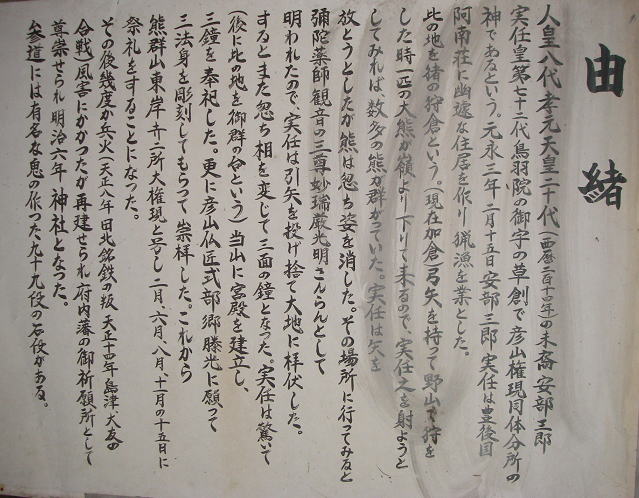 由緒
人皇八代孝元天皇二十代(西暦二百十四年)の末裔安部三郎
実任皇第七十二代鳥羽院の御宇の草創で彦山権現同体分所の
神であるという。元永三年二月十五日安部三郎実任は豊後国
阿南荘に幽遠な住居を作り猟漁を業とした。
此の地を猪の狩倉という。(現在加倉)弓矢を持って野山で狩を
した時一匹の大熊が嶺より下りて来るので、実任之を射ようと
してみれば、数多の熊が群がっていた。実任は矢を
放とうとしたが熊は忽ち姿を消した。その場所に行ってみると
彌陀薬師観音の三尊妙瑞厳光明さんらんとして
明われたので、実任は引矢を投げ捨て大地に拝伏した。
するとまた忽ち相を変じて三面の鐘となった。実任は驚いて
(後に此の地を御群の台という)当山に宮殿を建立し、
三鐘を奉祀した。更に彦山仏匠式部郷勝光に願って
三法身を彫刻してもらって崇拝した。これから
熊群山東岸寺十二所大権現と号し二月、六月、八月、十一月の十五日に
祭礼をすることになった。
その後幾度か兵火(天正八年田北銘鉄の叛 天正十四年島津大友の
合戦)風害にかかつたが再建せられ府内藩の御祈願所として
尊崇せられ明治六年神社となった。
参道には有名な鬼の作つた九十九段の石段がある。